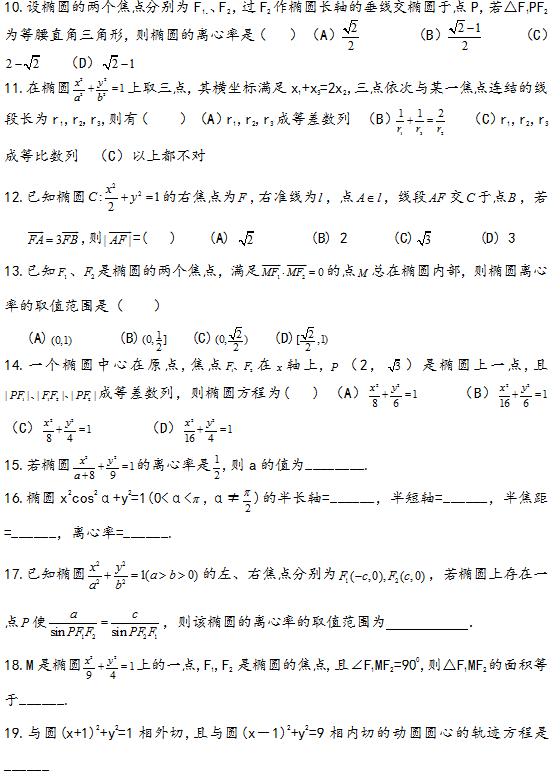 10.设椭圆的两个焦点分别为F₁、、F₂，过F₂作椭圆长轴的垂线交椭圆于点P，若△F₁PF₂
为等腰直角三角形，则椭圆的离心率是（ ）（A）√2/2 （B）(√2-1)/2 （C）
2-√2 （D）√2-1
11.在椭圆x²/a²+y²/b²=1上取三点，其横坐标满足x₁+x₃=2x₂,三点依次与某一焦点连结的线
段长为r₁,r₂,r₃,则有（ ）（A)r₁,r₂,r₃成等差数列 （B）1/r₁+1/r₃=2/r₂ （C)r₁,r₂,r₃
成等比数列 （C）以上都不对
12.已知椭圆C:x²/2+y²=1的右焦点为F,右准线为l，点A∈l，线段AF交C于点B，若
FA=3FB,则|AF|=( ) (A) √2 (B) 2 (C)√3 (D) 3
13.已知F₁、F₂是椭圆的两个焦点，满足MF₁·MF₂=0的点M总在椭圆内部，则椭圆离心
率的取值范围是（ ）
(A)(0,1) (B)(0,1/2] (C)(0,√2/2) (D)[√2/2,1)
14.一个椭圆中心在原点，焦点F₁、F₂在x轴上，P（2，√3）是椭圆上一点，且
|PF₁|、|F₁F₂|、|PF₂|成等差数列，则椭圆方程为( ) （A）x²/8+y²/6=1 （B）x²/16+y²/6=1
（C）x²/8+y²/4=1 （D）x²/16+y²/4=1
15.若椭圆x²/(a+8)+y²/9=1的离心率是1/2,则a的值为________.
16.椭圆x²cos²α+y²=1(0<α<π,α≠π/2)的半长轴=______，半短轴=______，半焦距
=______，离心率=______.
17.已知椭圆x²/a²+y²/b²=1(a>b>0)的左、右焦点分别为F₁(-c,0),F₂(c,0)，若椭圆上存在一
点P使a/sinPF₁F₂=c/sinPF₂F₁，则该椭圆的离心率的取值范围为___________.
18.M是椭圆x²/9+y²/4=1上的一点,F₁,F₂是椭圆的焦点,且∠F₁MF₂=90⁰,则△F₁MF₂的面积等
于______.
19.与圆(x+1)²+y²=1相外切,且与圆(x－1)²+y²=9相内切的动圆圆心的轨迹方程是
______